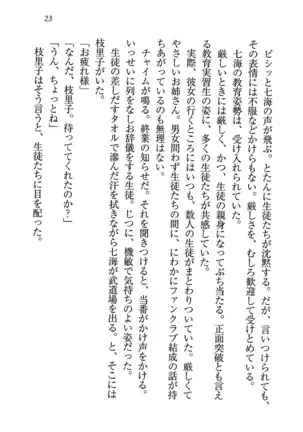 23
ビシッと七海の声が飛ぶ。とたんに生徒たちが沈黙する。だが、言いつけられても、
その表情には不服などうかがえない。厳しさを、むしろ歓迎して受けとめている。
七海の教育姿勢は、受け入れられていた。
厳しいときには厳しく、かつ、生徒の親身になってぶち当たる。正面突破とも言え
る教育実習生の姿に、多くの生徒たちが共感していた。
実際、彼女の行くところにはいつも、数人の生徒がまとわりついていた。厳しくて
やさしいお姉さん。男女問わず生徒たちの間に、にわかにファンクラブ結成の話が持
ちあがっているのも無理はない。
チャイムが鳴る。終業の知らせだ。それを聞きつけると、当番がかけ声をかけ、
いっせいに列をなしお辞儀をする生徒。じつに、機敏で気持ちのよい姿だった。
生徒の差しだすタオルで滲んだ汗を拭きながら七海が武道場を出る。と、そこには
枝里子がいた。
「お疲れ様」
「なんだ、枝里子。待っててくれたのか？」
「うん、ちょっとね」
枝里子はそう言うと、生徒たちに目を配った。